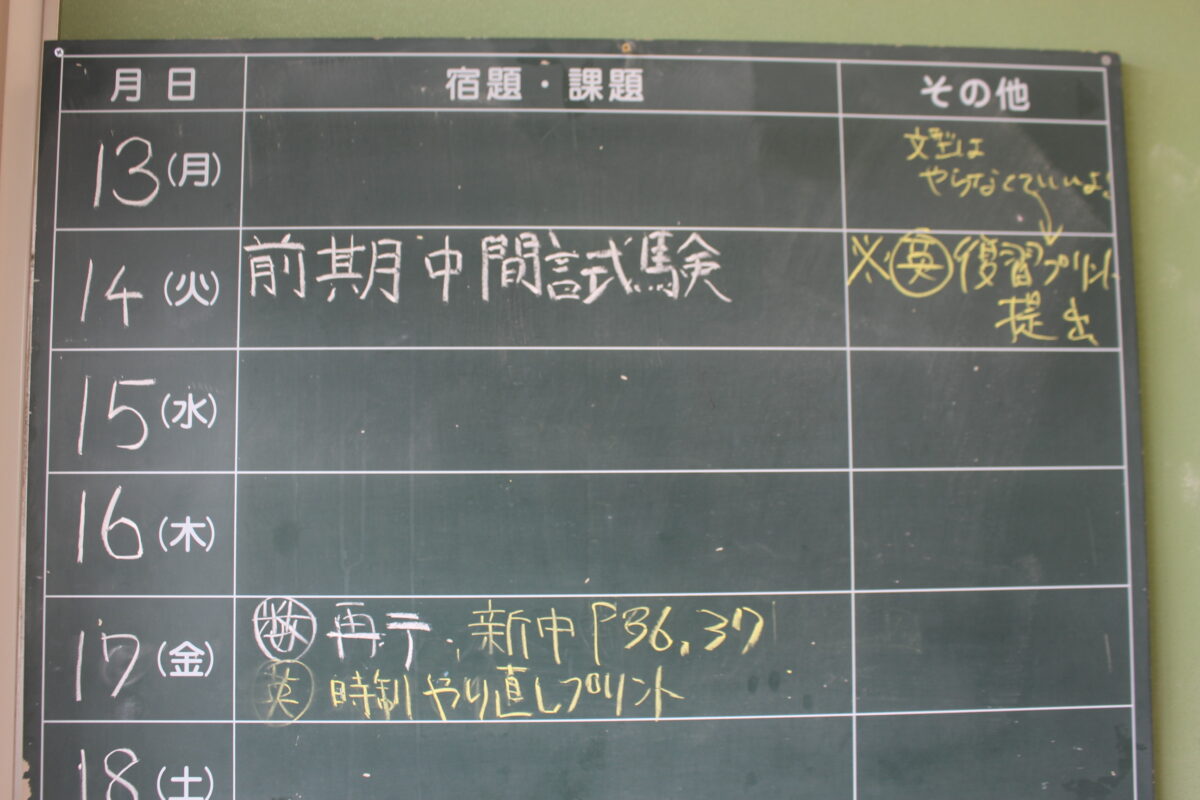 月日 宿題・課題 その他
13(月) 文型は
やらなくていいよ!
14(火) 前期中間試験 ※英復習プリント
提出
15(水)
16(木)
17(金) 数再テ.新中P36.37
英時制やり直しプリント
18(土)